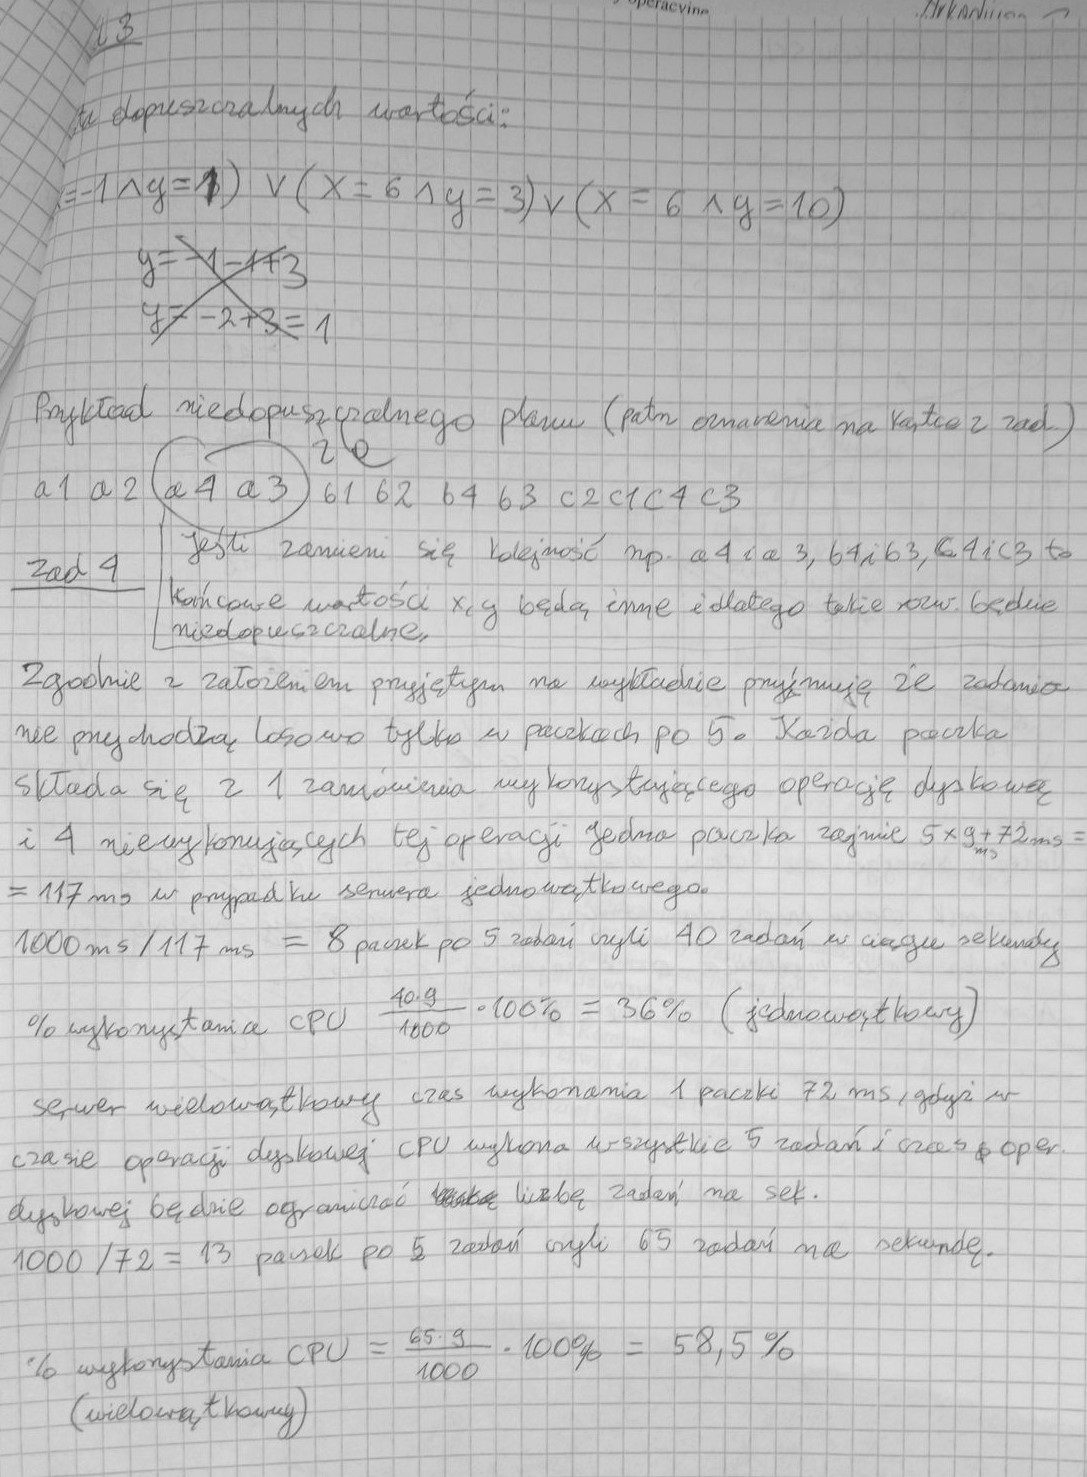 operacyjne
3
dopuszczalnych wartości:
=-1 ∧ y=1) ∨ (x=6 ∧ y=3) ∨ (x=6 ∧ y=10)
y=-1-1+3
y=-2+3=1
Przykład niedopuszczalnego planu (patrz oznaczenia na kartce z zad.)
a1 a2 a4 a3 b1 b2 b4 b3 c2 c1 c4 c3
Jeśli zamieni się kolejność np. a4 i a3, b4 i b3, c4 i c3 to
Zad 4
końcowe wartości x, y będą inne i dlatego takie rozw. będzie
niedopuszczalne.
Zgodnie z założeniem przyjętym na wykładzie przyjmuję że zadania
nie przychodzą losowo tylko w paczkach po 5. Każda paczka
składa się z 1 zamówienia wykorzystującego operację dyskową
i 4 niewykonujących tej operacji Jedna paczka zajmie 5×9ms+72ms =
= 117ms w przypadku serwera jednowątkowego.
1000ms/117ms = 8 paczek po 5 zadań czyli 40 zadań w ciągu sekundy
% wykorzystania CPU 40·9/1000 ·100% = 36% (jednowątkowy)
serwer wielowątkowy czas wykonania 1 paczki 72 ms, gdyż w
czasie operacji dyskowej CPU wykona wszystkie 5 zadań i czas oper.
dyskowej będzie ograniczać liczbę zadań na sek.
1000/72 = 13 paczek po 5 zadań czyli 65 zadań na sekundę.
% wykorzystania CPU = 65·9/1000 · 100% = 58,5%
(wielowątkowy)